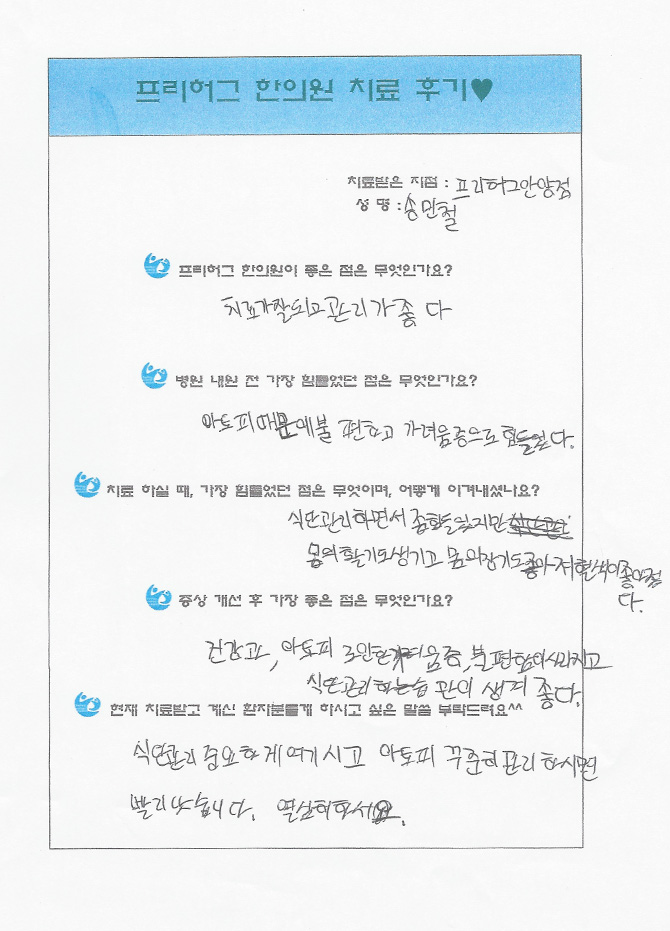 프리허그 한의원 치료 후기♥
치료받은 지점 : 프리허그안양점
성 명 : 송민철
프리허그 한의원이 좋은 점은 무엇인가요?
치료가잘되고관리가좋다
병원 내원 전 가장 힘들었던 점은 무엇인가요?
아토피때문에불편하고 가려움증으로힘들었다.
치료 하실 때, 가장 힘들었던 점은 무엇이며, 어떻게 이겨내셨나요?
식단관리하면서 힘들었지만
몸의활기도생기고 몸의장기도좋아져혈색이좋아졌
다.
증상 개선 후 가장 좋은 점은 무엇인가요?
건강과, 아토피로인한가려움증,불편함이사라지고
식단관리하는습관이 생겨 좋다.
현재 치료받고 계신 환자분들게 하시고 싶은 말씀 부탁드려요^^
식단관리 중요하게여기시고 아토피 꾸준히관리하시면
빨리낫습니다. 열심히하세요.